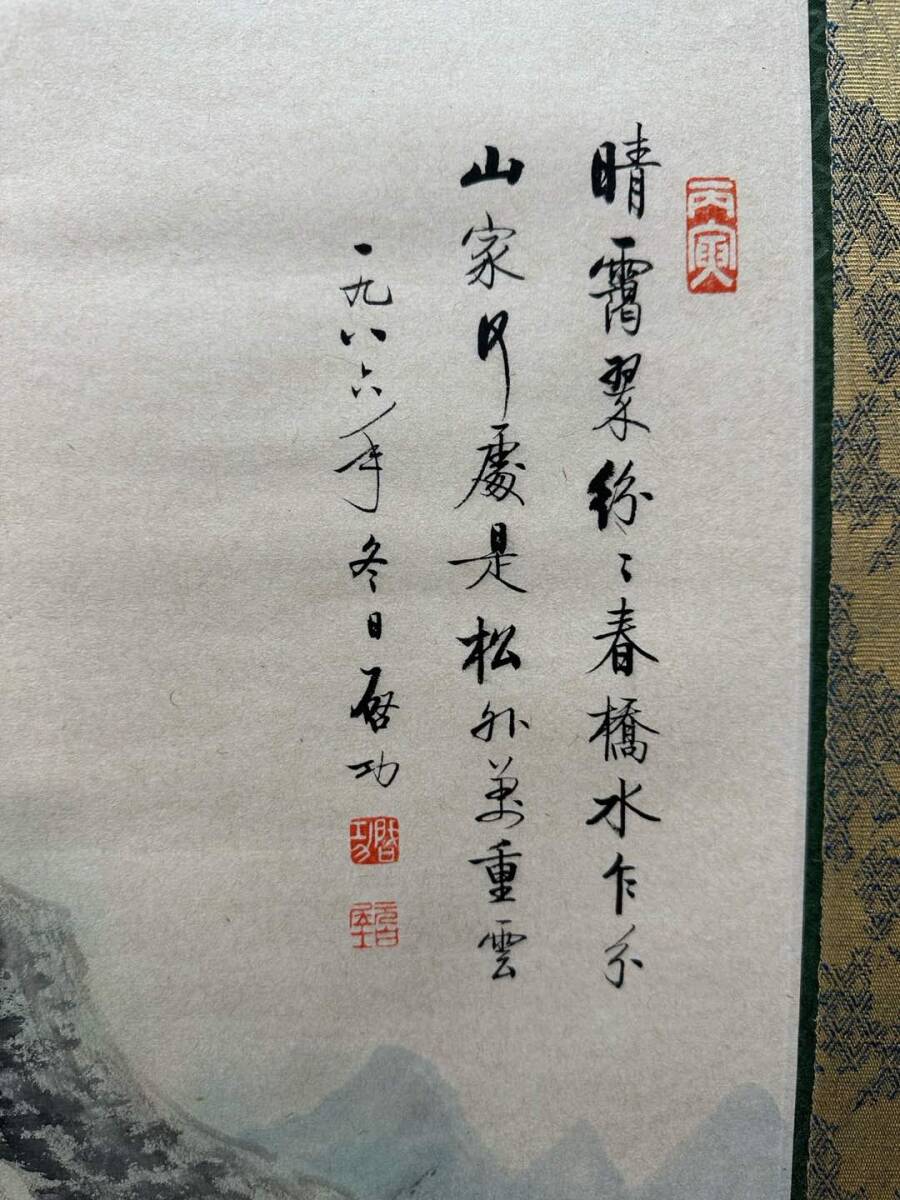 丙寅
晴霄翠紛〻春橋水乍分
山家何處是松外萬重雲
一九八六年冬日啓功
啓功
元白居士